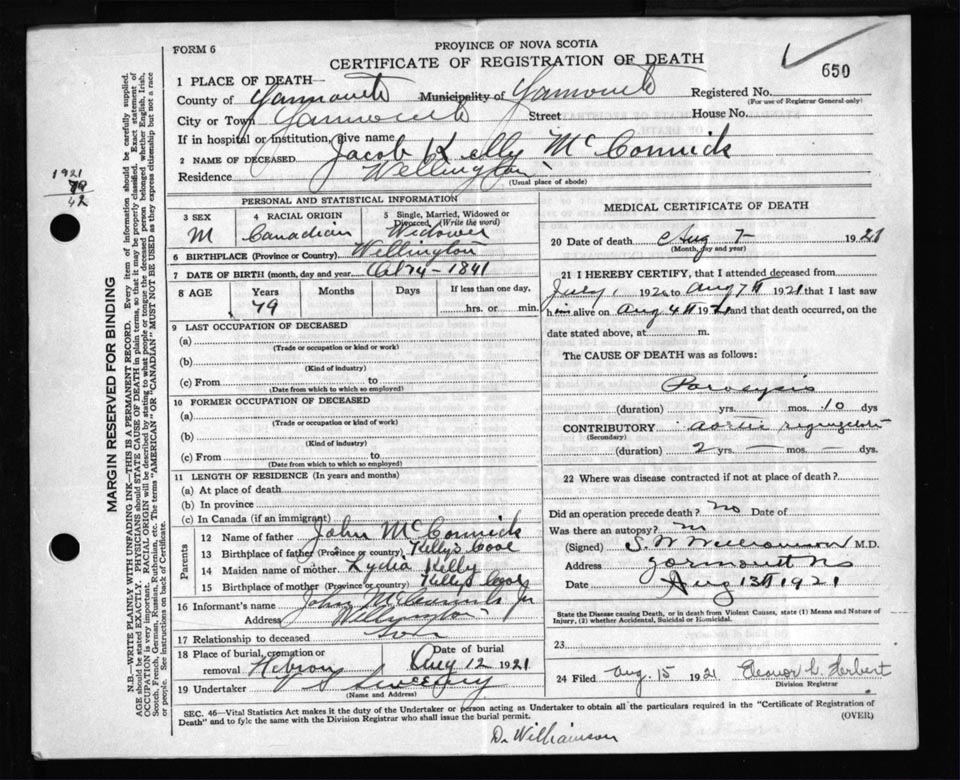 PROVINCE OF NOVA SCOTIA
FORM 6
CERTIFICATE OF REGISTRATION OF DEATH
650
1 PLACE OF DEATH
County of Yarmouth Municipality of Yarmouth Registered No.
(For use of Registrar General only)
City or Town Yarmouth Street House No.
If in hospital or institution, give name
2 NAME OF DECEASED Jacob Kelly McCormick
Residence Wellington
(Usual place of abode)
1921
79
42
MARGIN RESERVED FOR BINDING
N.B.—WRITE PLAINLY WITH UNFADING INK—THIS IS A PERMANENT RECORD. Every item of information should be carefully supplied.
AGE should be stated EXACTLY. PHYSICIANS should STATE CAUSE OF DEATH in plain terms, so that it may be properly classified. Exact statement of
OCCUPATION is very important. RACIAL ORIGIN will be described by stating to what people or tongue the deceased person belonged whether English, Irish,
Scotch, French, German, Russian, Ruthenian, etc. The terms "AMERICAN" OR "CANADIAN" MUST NOT BE USED as they express citizenship but not a race
or people. See instructions on back of Certificate.
PERSONAL AND STATISTICAL INFORMATION
3 SEX 4 RACIAL ORIGIN 5 Single, Married, Widowed or
Divorced (Write the word)
M Canadian Widower
6 BIRTHPLACE (Province or Country) Wellington
7 DATE OF BIRTH (month, day and year) 1841
8 AGE Years Months Days If less than one day,
79 hrs. or min.
9 LAST OCCUPATION OF DECEASED
(a)
(Trade or occupation or kind or work)
(b)
(Kind of industry)
(c) From to
(Date from which to which so employed)
10 FORMER OCCUPATION OF DECEASED
(a)
(Trade or occupation or kind of work)
(b)
(Kind of industry)
(c) From to
(Date from which to which so employed)
11 LENGTH OF RESIDENCE (In years and months)
(a) At place of death
(b) In province
(c) In Canada (if an immigrant)
Parents
12 Name of father John McCormick
13 Birthplace of father (Province or country) Kellys Cove
14 Maiden name of mother Lydia Kelly
15 Birthplace of mother (Province or country) Kellys Cove
16 Informant's name John McCormick Jr
Address Wellington
17 Relationship to deceased Son
18 Place of burial, cremation or Date of burial
removal Hebron Aug 12 1921
19 Undertaker Sweeny
(Name and Address)
MEDICAL CERTIFICATE OF DEATH
20 Date of death Aug 7 1921
(Month, day and year)
21 I HEREBY CERTIFY, that I attended deceased from
July 1 192 to Aug 7th 1921 that I last saw
h alive on Aug 4th 1921 and that death occurred, on the
date stated above, at m.
The CAUSE OF DEATH was as follows:
Paralysis
(duration) yrs. mos. 10 dys
CONTRIBUTORY aortic regurgitation
(Secondary)
(duration) 2 yrs. mos. dys.
22 Where was disease contracted if not at place of death?
Did an operation precede death? no Date of
Was there an autopsy? no
(Signed) S. W Williamson M.D.
Address Yarmouth NS
Date Aug 13th 1921
State the Disease causing Death, or in death from Violent Causes, state (1) Means and Nature of
Injury, (2) whether Accidental, Suicidal or Homicidal.
23
24 Filed Aug. 15 1921 Eleanor C. Herbert
Division Registrar
SEC. 46—Vital Statistics Act makes it the duty of the Undertaker or person acting as Undertaker to obtain all the particulars required in the "Certificate of Registration of
Death" and to fyle the same with the Division Registrar who shall issue the burial permit.
(OVER)
Dr Williamson